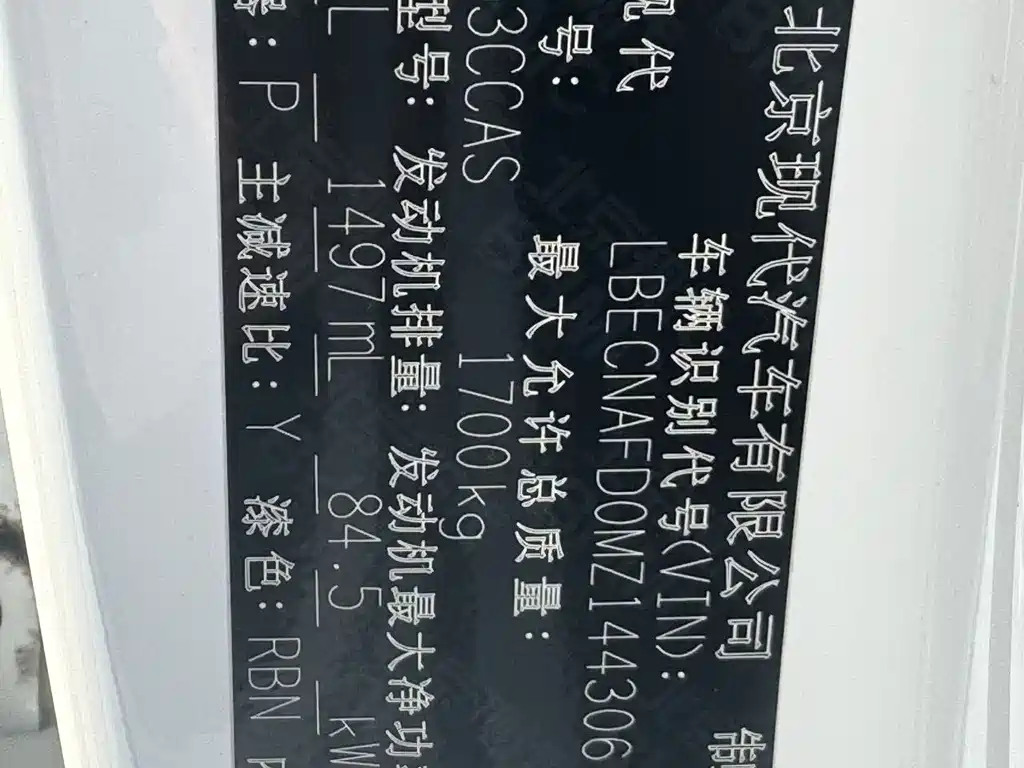 北京现代汽车有限公司
现代 车辆识别代号(VIN): 制
号: LBECNAFD0MZ144306
最大允许总质量:
3CCAS 1700kg
型号: 发动机排量: 发动机最大净功
L 1497mL 84.5 kW
器: P 主减速比: Y 漆色: RBN